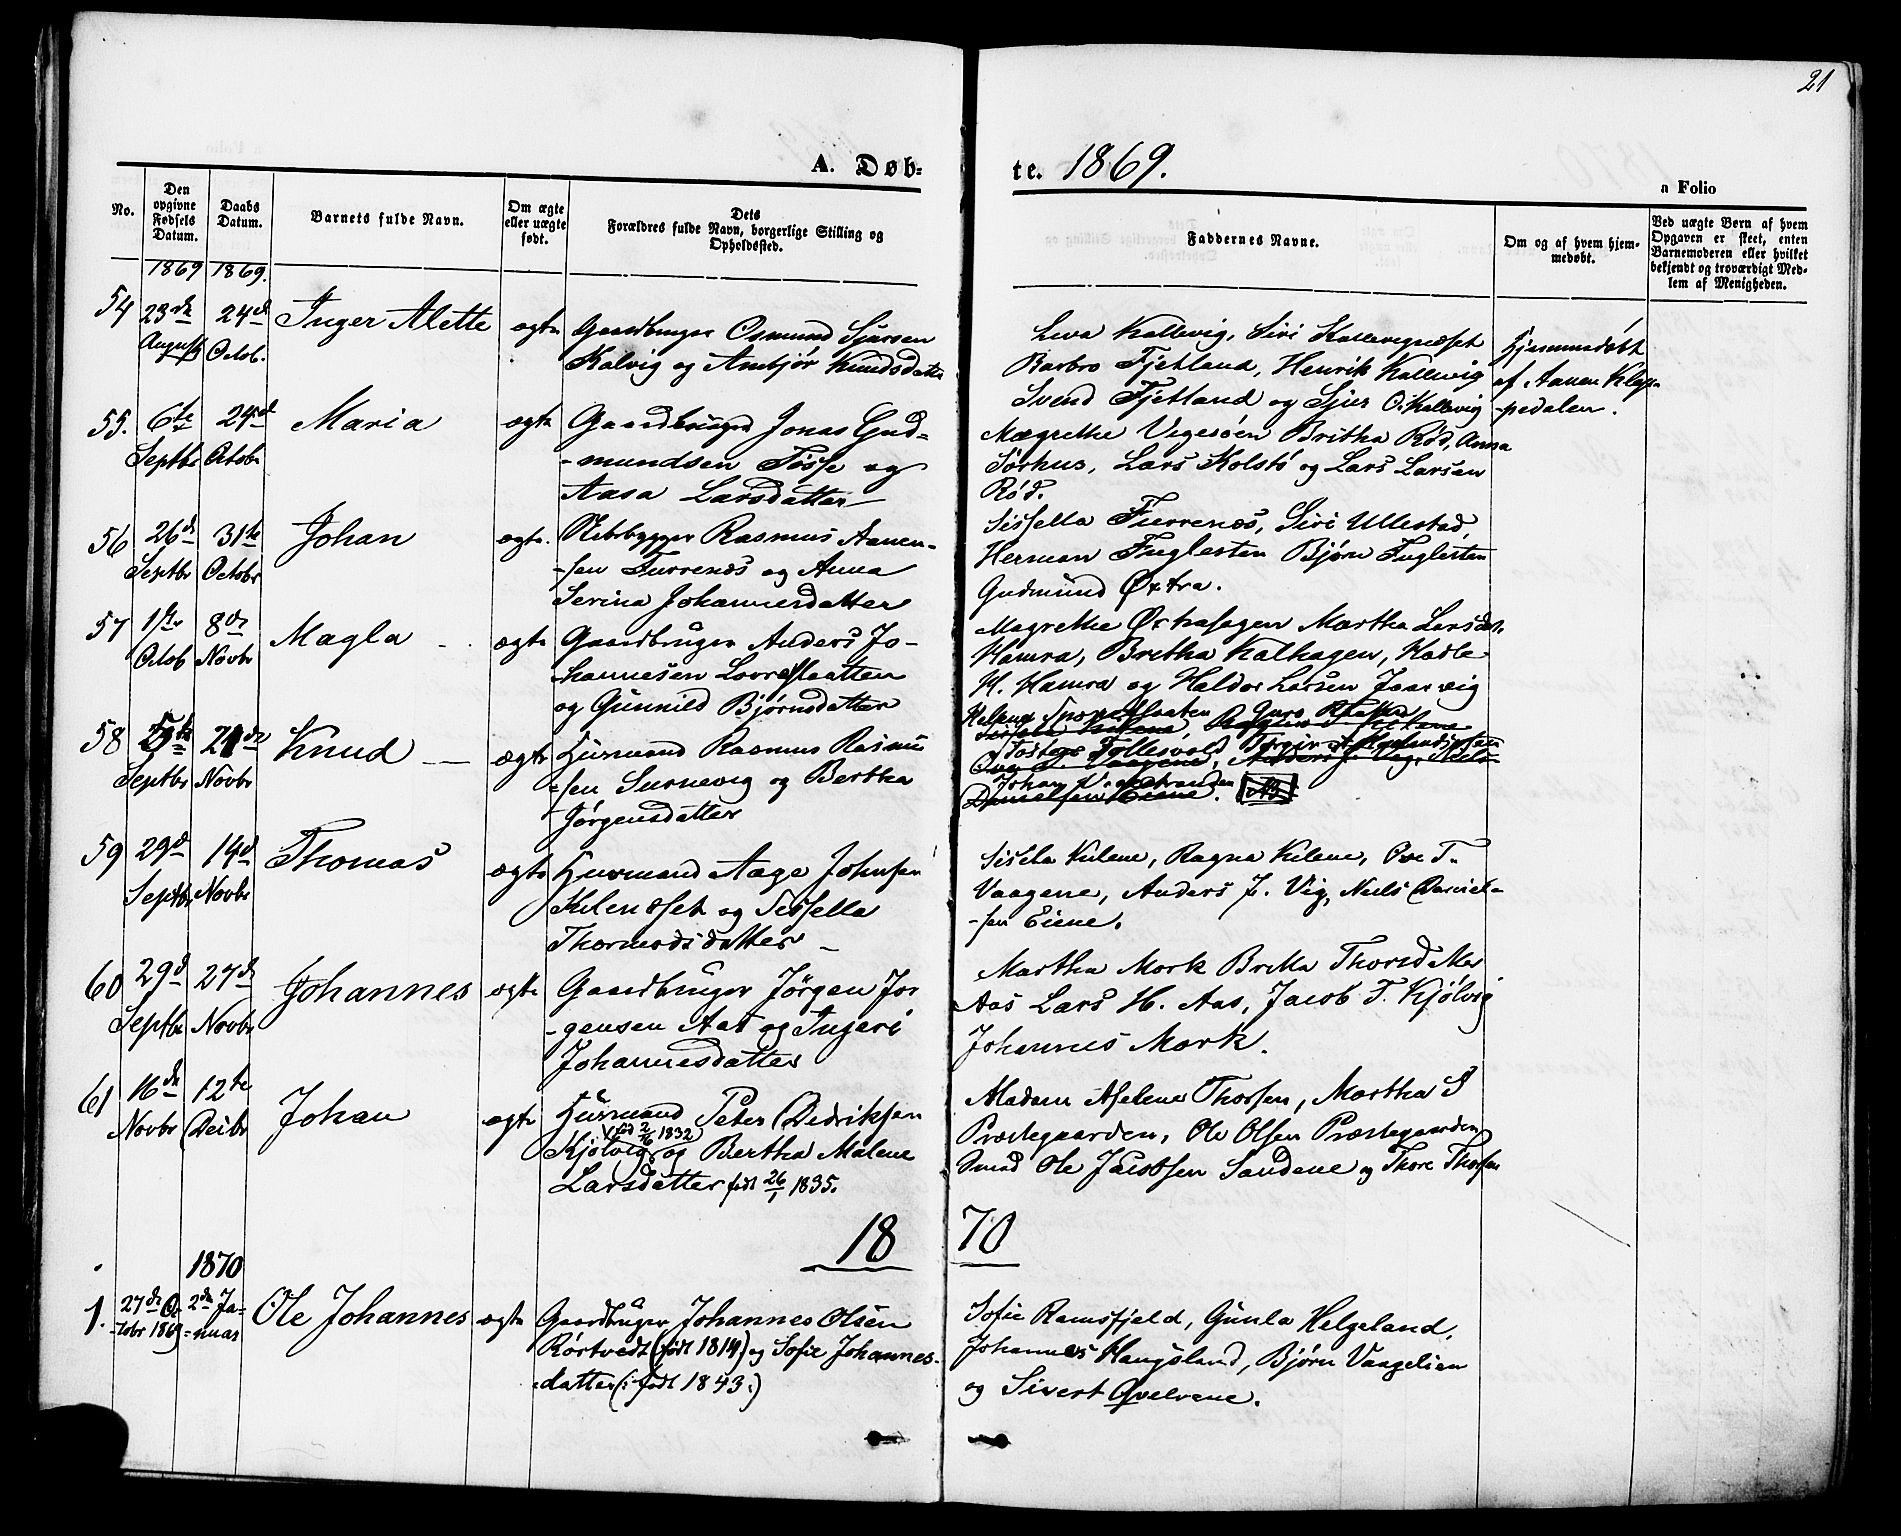 21
A. Døb-
te. 1869.
a Folio
No.
Den opgivne Fødsels Datum.
Daabs Datum.
Barnets fulde Navn.
Om ægte eller uægte født.
Dets Forældres fulde Navn, borgerlige Stilling og Opholdssted.
Faddernes Navne.
Om og af hvem hjem-
medøbt.
Ved uægte Børn af hvem
Opgaven er skeet, enten
Barnemoderen eller hvilket
bekjendt og troværdigt Med-
lem af Menigheden.
1869 1869.
54 23de August 24de Octob. Inger Alette ægte
Gaardbruger Osmund Sjursen
Kalvig og Anbjør Knudsdatter
Liva Kallevig, Siri Kallevignæset
Barbro Fjetland, Henrik Kallevig
Svend Fjetland og Sjur O. Kallevig
Hjemmedøbt
af Aanen Klep-
pedalen.
55. 6te Septbr 24de Octobr Maria ægte
Gaardbruger Jonas Gud-
mundsen Tøsse og
Aasa Larsdatter
Magrethe Vegesøen Britha Rød, Anna
Sørhus, Lars Kolstø og Lars Larsen
Rød.
56 26de Septbr 31te Octobr Johan ægte.
Nybbygger Rasmus Aanen-
sen Furrenæs og Anna
Serina Johannesdatter
Sissella Furrenæs, Siri Ullestad,
Herman Fuglesten Bjørn Fuglesten
Gudmund Øxtra.
57 1ste Octob 8de Novbr Magla ægte
Gaardbruger Anders Jo-
hannesen Lovreslaatten
og Gunnild Bjørnsdatter
Magrethe Øxtrahagen Martha Larsdat.
Hamra, Bretha Kalhagen, Kadle
H. Hamra og Haldor Larsen Jaasvig
58 5te Septbr 21de Novbr Knud ægte
Husmand Rasmus Rasmu-
sen Surnevig og Bertha
Jørgensdatter
59 29de Septbr 14de Novbr Thomas ægte
Husmand Aage Johnsen
Kilenæset og Sissella
Thormodsdatter
Sisela Kilene, Ragna Kilene, Ove T.
Vaagene, Anders J. Vig, Niels Daniel-
sen Eiene.
60 29de Septbr 27de Novbr Johannes ægte
Gaardbruger Jørgen Jør-
gensen Aas og Ingeri
Johannesdatter
Martha Mork Britta Thorsdatter
Aas Lars H. Aas, Jacob T. Kjølvig
Johannes Mork.
61 16de Novbr 12te Decbr Johan ægte
Husmand Peter Didriksen
Kjølvig (fød 2/6 1832) og Bertha Malene
Larsdatter født 26/1 1835.
Madam Aselene Thorsen, Martha S
Præstegaarden, Ole Olsen Præstegaarden
Smed Ole Jacobsen Sandene og Thore Thorsen
18 70
1870
1. 27de Oc-
tobr 1869 2den Ja-
nuar Ole Johannes ægte
Gaardbruger Johannes Olsen
Rørtvedt (født 1814) og Sofie Johannes-
datter (: født 1843:)
Sofie Ramsfjeld, Gunla Helgeland,
Johannes Haugsland, Bjørn Vaagelien
og Sivert Qvelvene.